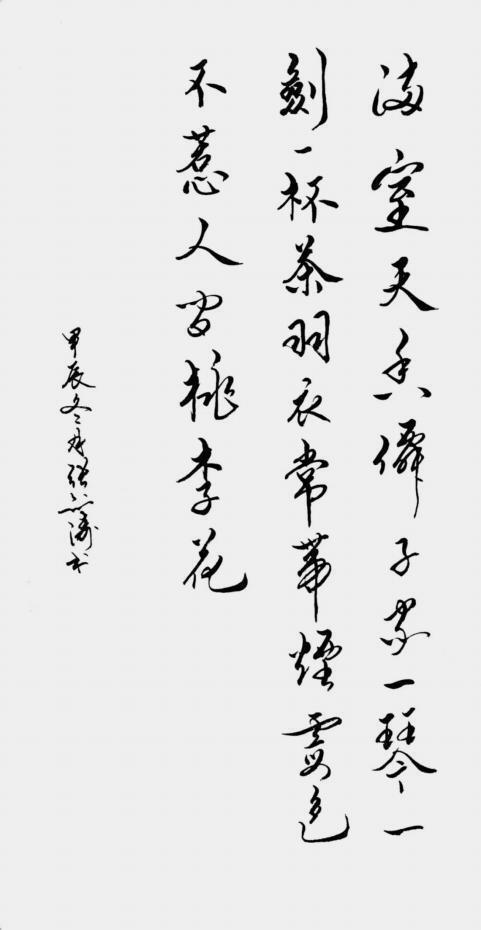 滿室天香僊子家一琴一
劍一杯茶羽衣常帶煙霞色
不惹人間桃李花
甲辰冬月張濤書